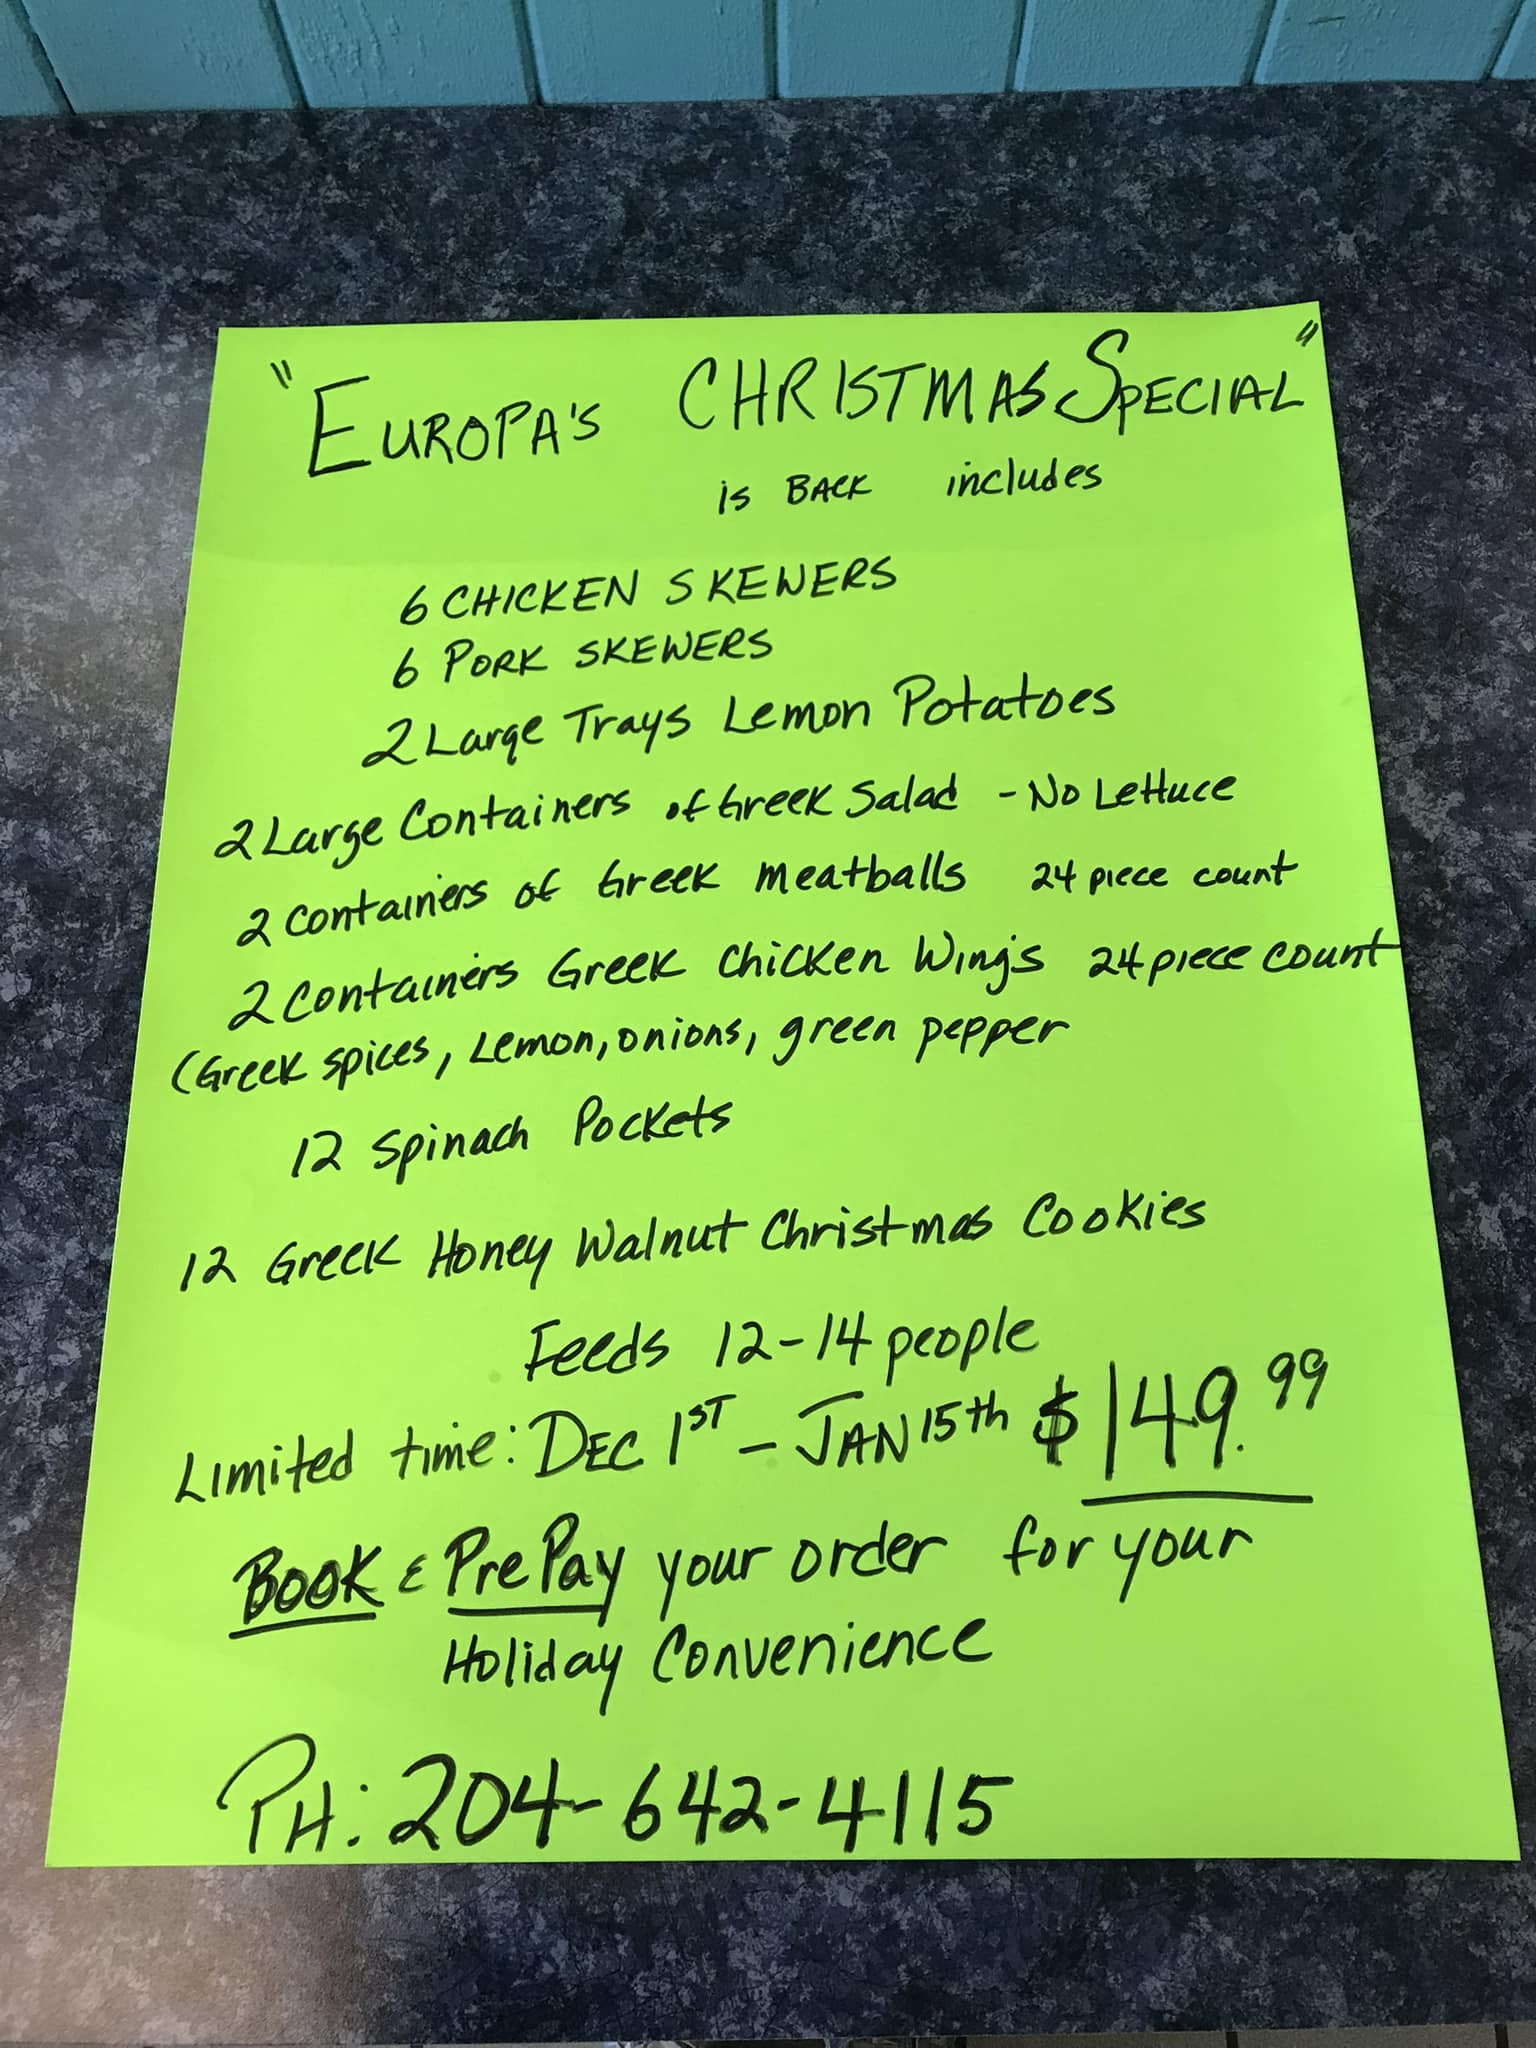 "EUROPA'S CHRISTMAS SPECIAL"
is BACK includes
6 CHICKEN SKEWERS
6 PORK SKEWERS
2 Large Trays Lemon Potatoes
2 Large Containers of Greek Salad - No Lettuce
2 Containers of Greek meatballs 24 piece count
2 Containers Greek Chicken Wings 24 piece count
(Greek spices, Lemon, onions, green pepper
12 Spinach Pockets
12 Greek Honey Walnut Christmas Cookies
Feeds 12-14 people
Limited time: DEC 1ST - JAN 15th $149.99
BOOK & PrePay your order for your
Holiday Convenience
PH: 204-642-4115